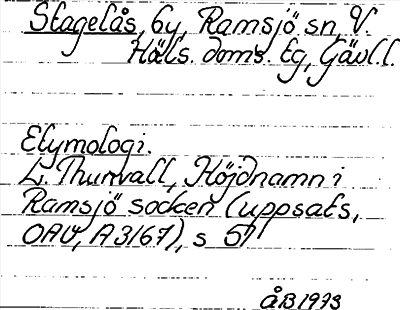 Stagelås, by, Ramsjö sn, V.
Häls. doms. tg, Gävl. l.
Etymologi.
L. Thunvall, Höjdnamn i
Ramsjö socken (uppsats,
OAU, A3167), s 51
ÅB 1973